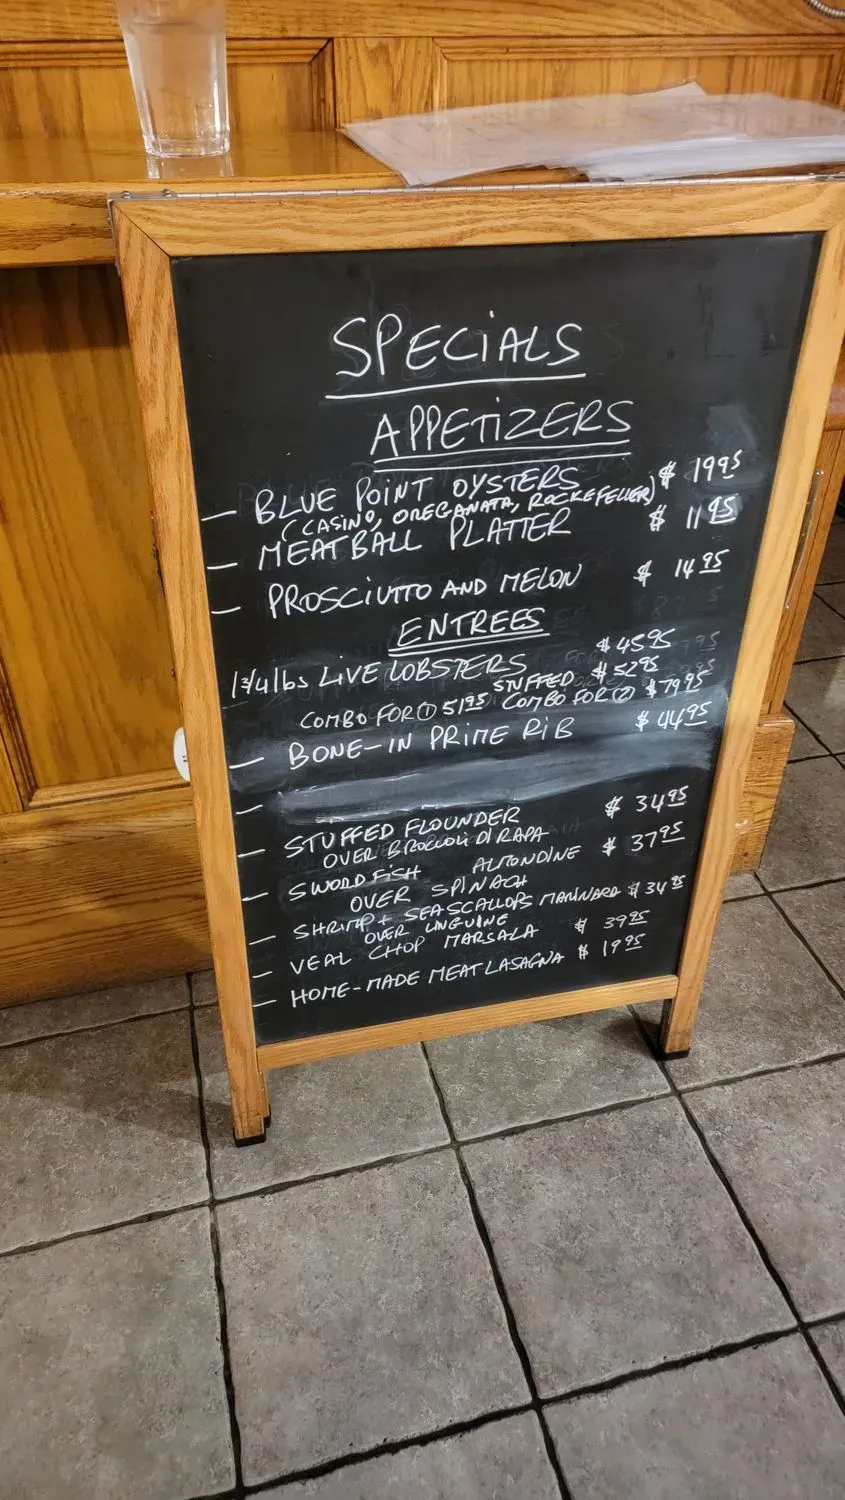 SPECIALS
APPETIZERS
— BLUE POINT OYSTERS $ 19 95
(CASINO, OREGANATA, ROCKEFELLER)
— MEATBALL PLATTER $ 11 95
— PROSCIUTTO AND MELON $ 14 95
ENTREES
1 3/4 lbs LIVE LOBSTERS $ 45 95
STUFFED $ 52 95
COMBO FOR 1 51 95 COMBO FOR 2 $ 79 95
— BONE-IN PRIME RIB $ 44 95
—
— STUFFED FLOUNDER $ 34 95
OVER BROCCOLI DI RAPA
— SWORDFISH ALMONDINE $ 37 95
OVER SPINACH
— SHRIMP + SEA SCALLOPS MARINARA $ 34 95
OVER LINGUINE
— VEAL CHOP MARSALA $ 39 95
— HOME-MADE MEAT LASAGNA $ 19 95